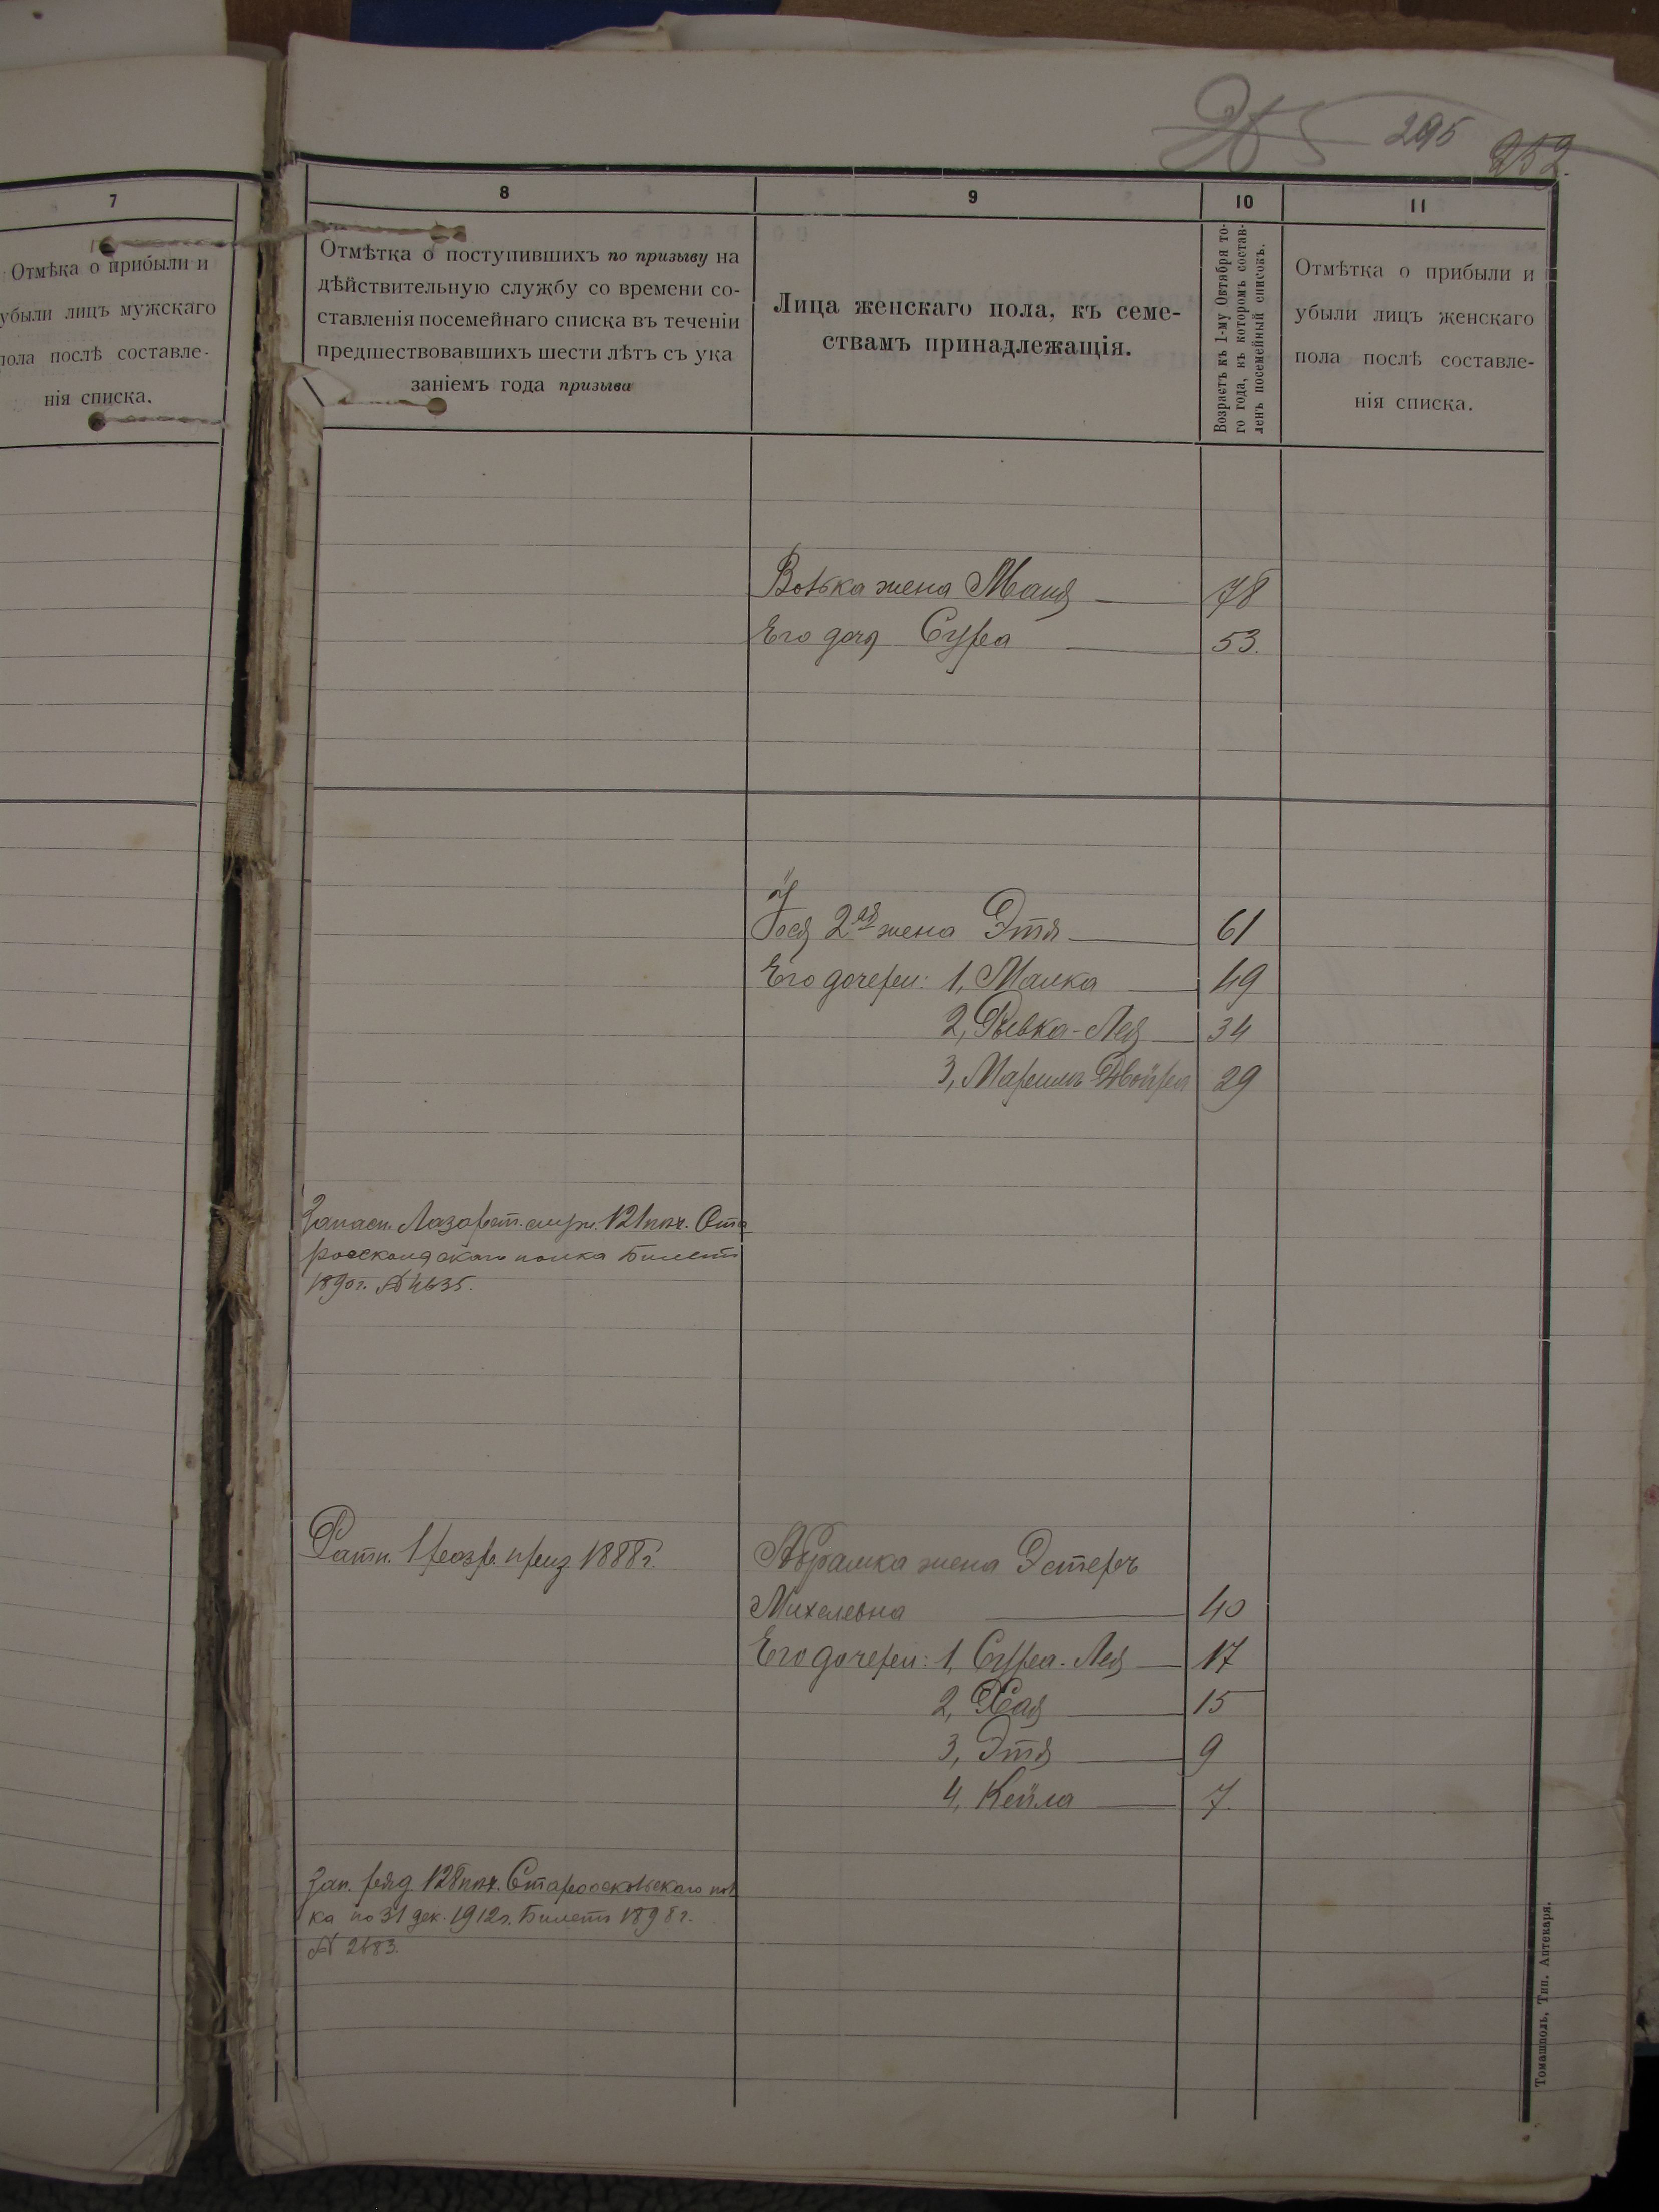 295
252.
7
Отмѣка о прибыли и
убыли лицъ мужскаго
пола послѣ составле-
нія списка.
8
Отмѣтка о поступившихъ по призыву на
дѣйствительную службу со времени со-
ставленія посемейнаго списка въ теченіи
предшествовавшихъ шести лѣтъ съ ука
заніемъ года призыва
9
Лица женскаго пола, къ семе-
ствамъ принадлежащія.
10
Возрастъ къ 1-му Октября то-
го года, къ которомъ состав-
ленъ посемейный списокъ.
11
Отмѣтка о прибыли и
убыли лицъ женскаго
пола послѣ составле-
нія списка.
жена Маня 78
Его дочь Сура 53.
2ая жена Этя 61
Его дочери: 1, Малка 49
2, Рывка-Лея 34
3, Двойра 29
Запасн. Лазарет. служ. 121 пѣх.
полка Билетъ
1890 г. № 4635.
Ратн. 1 разр. приз. 1888 г.
Абрамка жена Эстеръ
Михелевна 40
Его дочери: 1, Сура-Лея 17
2, Хая 15
3, Этя 9
4, Кейла 7.
Зап. ряд. 128 пѣх. Старооскольскаго пол
ка по 31 дек. 1912 г. Билетъ 1898 г.
№ 2683.
Томашполь, Тип. Аптекаря.